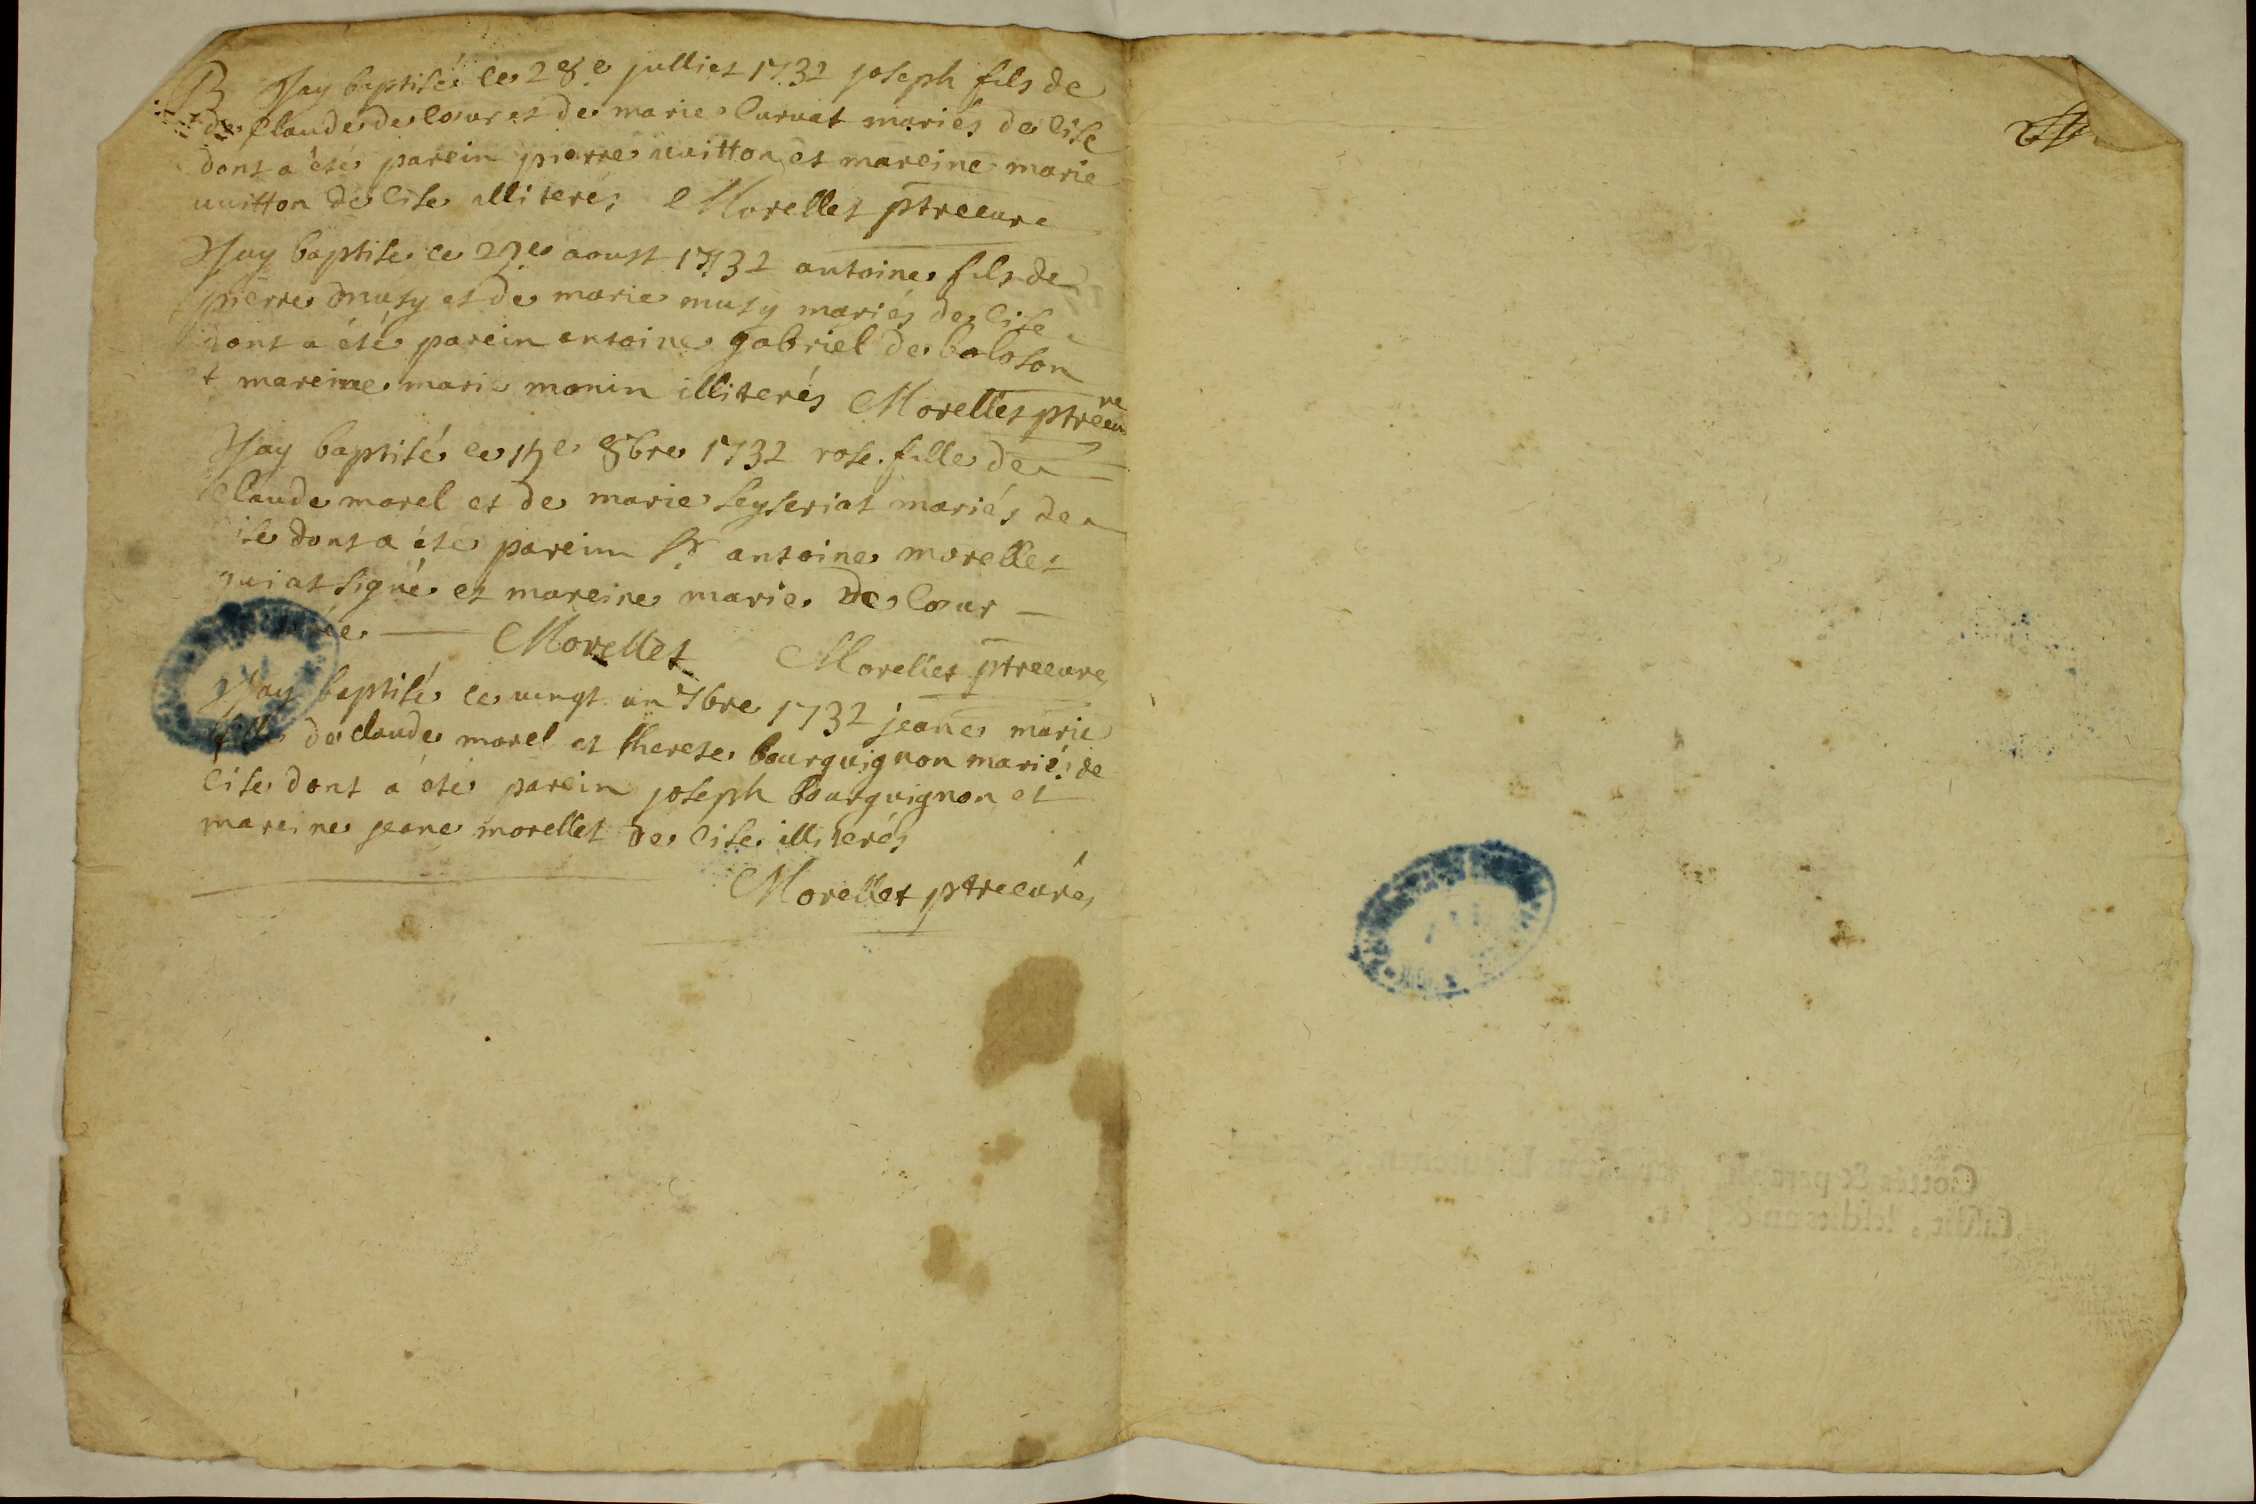 B Jay baptisé le 28e julliet 1732 joseph fils de
de Claude de Cour et de marie Curvat mariés de Cise
dont a été parein pierre vuitton et mareine marie
vuitton de Cise illiterés Morellet ptre curé
Jay baptisé le 29e aoust 1732 antoine fils de
pierre musy et de marie musy mariés de Cise
dont a été parein antoine gabriel de boloson
et mareine marie monin illiterés Morellet ptre curé
Jay baptisé le 8bre 1732 rose fille de
Claude morel et de marie seyseriat mariés de
Cise dont a été parein Sr antoine morellet
qui at signé et mareine marie de Cour
Morellet Morellet ptre curé
Jay baptisé le vingt un 7bre 1732 jeane marie
fille de claude morel et therese bourguignon mariés de
Cise dont a été parein joseph bourguignon et
mareine jeane morellet de Cise illiterés
Morellet ptre curé